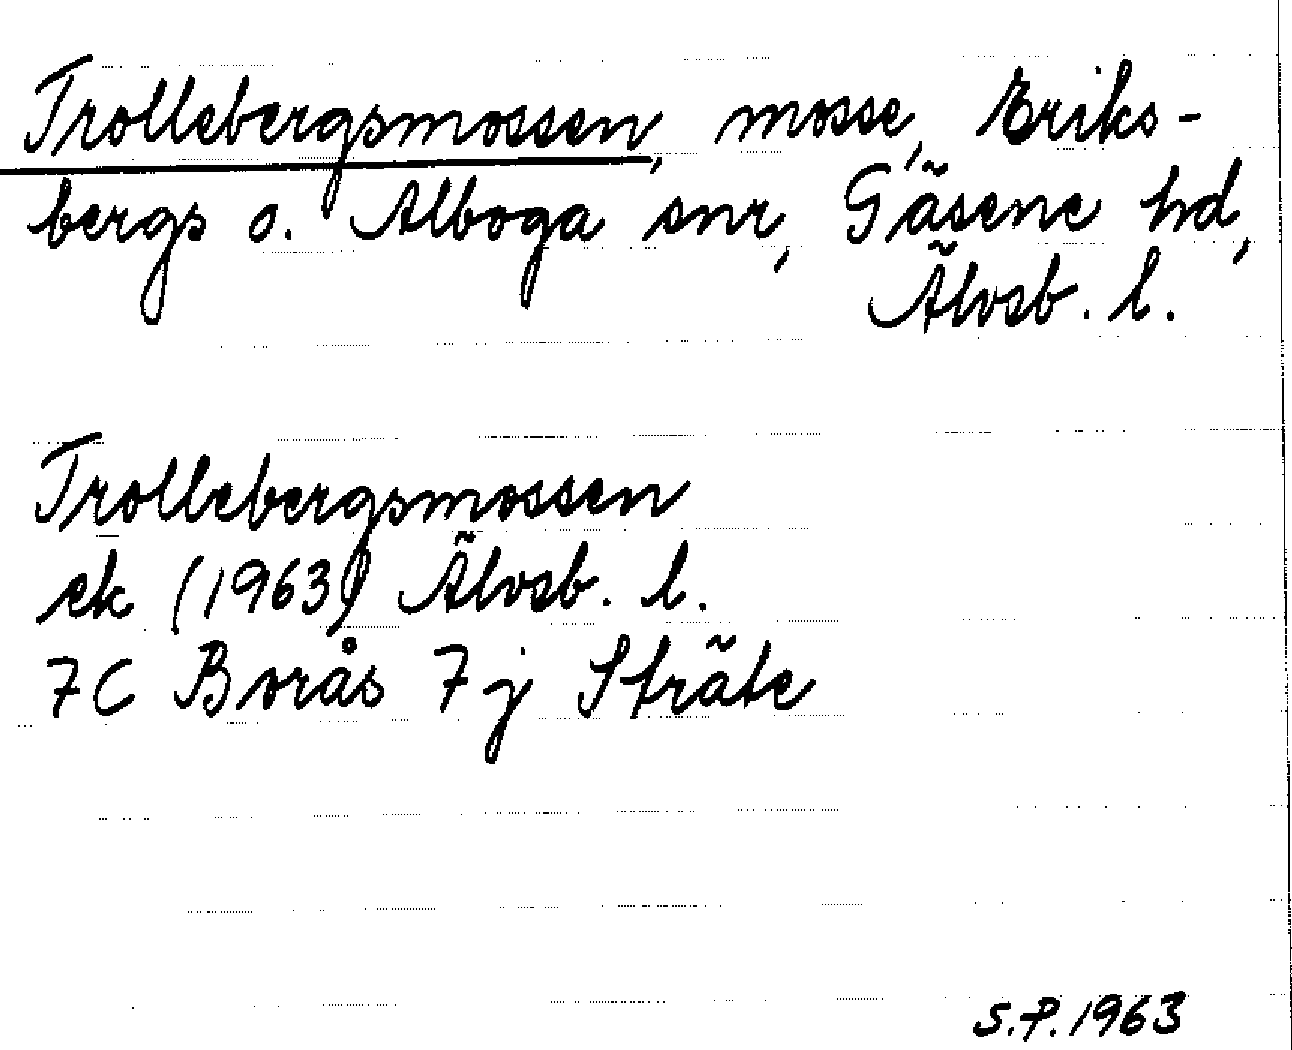 Trollebergsmossen, mosse, Eriks-
bergs o. Alboga snr, Gäsene hd,
Älvsb. l.
Trollebergsmossen
ek (1963) Älvsb. l.
7C Borås 7j Sträte
S.P. 1963